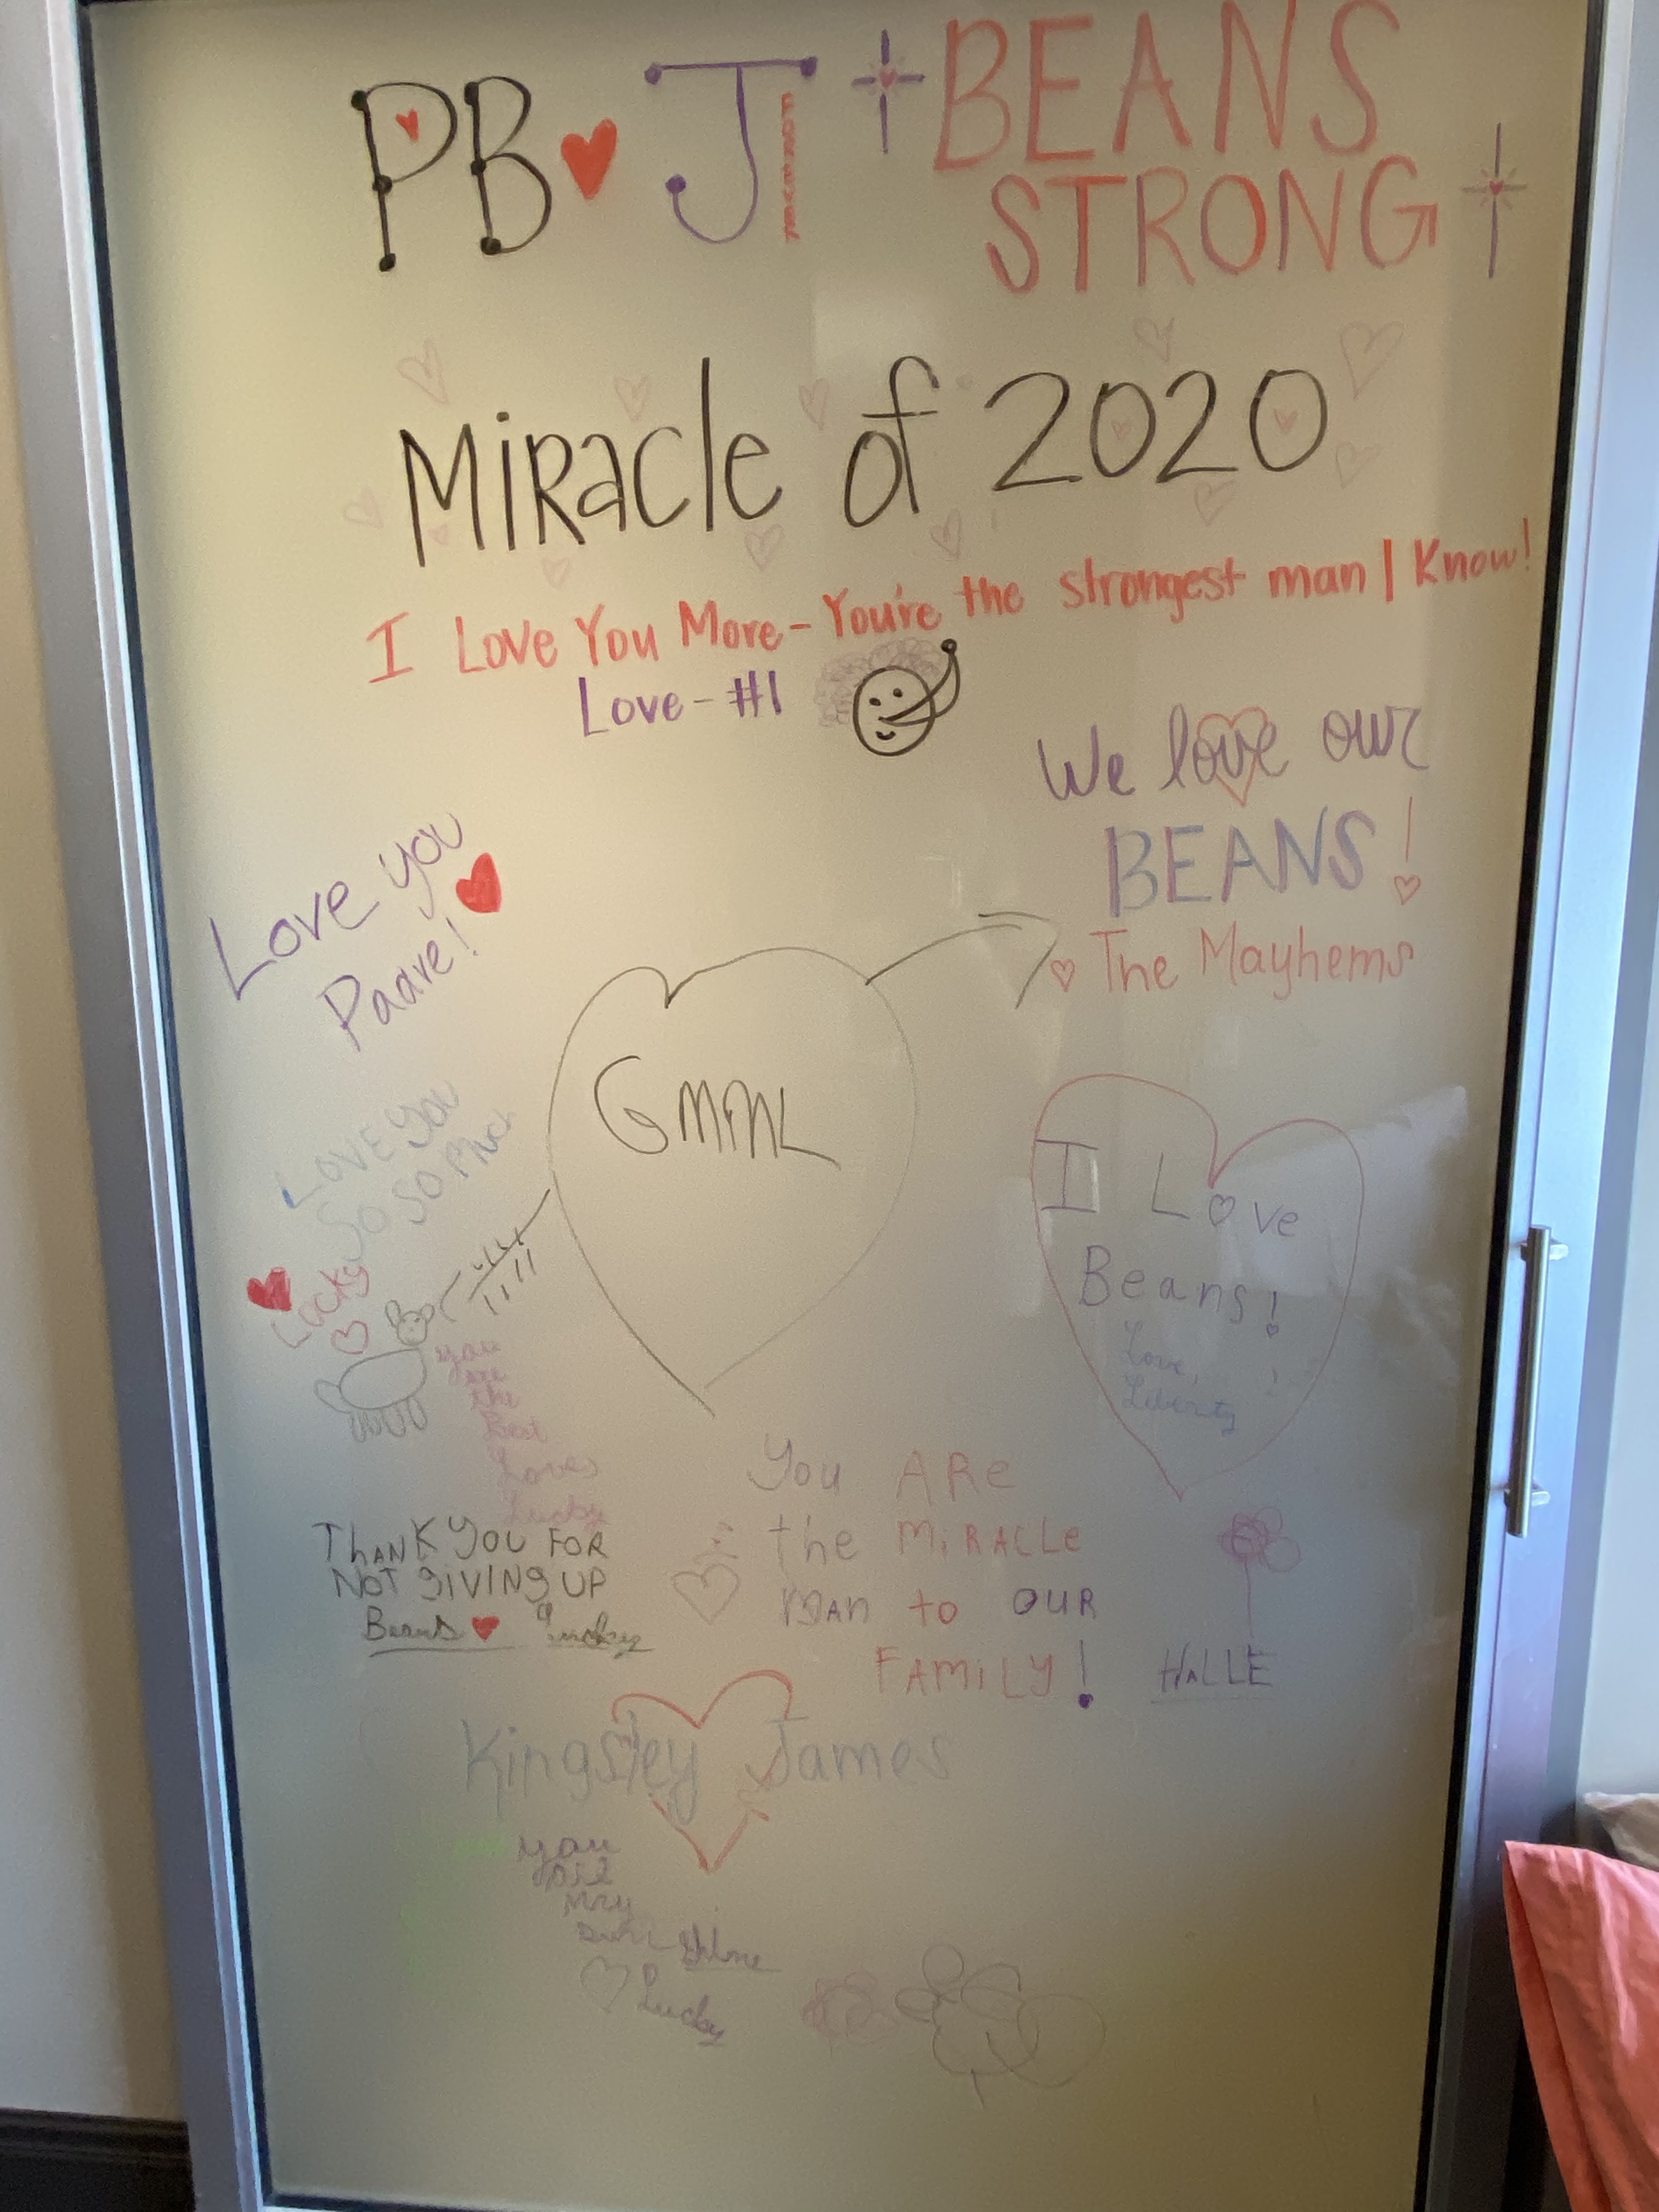 PB ♥ J FOREVER
BEANS
STRONG
Miracle of 2020
I Love You More - You're the strongest man I Know!
Love - #1
We love our
BEANS!
The Mayhems
Love you
Paave!
GMML
LOVE you
So So Much
Lucky
I Love
Beans!
Love,
Liberty
you
are
the
Best
Loves
Lucky
THANK YOU FOR
NOT GIVING UP
Beans ♥ Lucky
You ARe
the MiRACLe
MAN to OUR
FAMiLY! HALLE
Kingsley James
you
are
my
Sun-Shine
Lucky